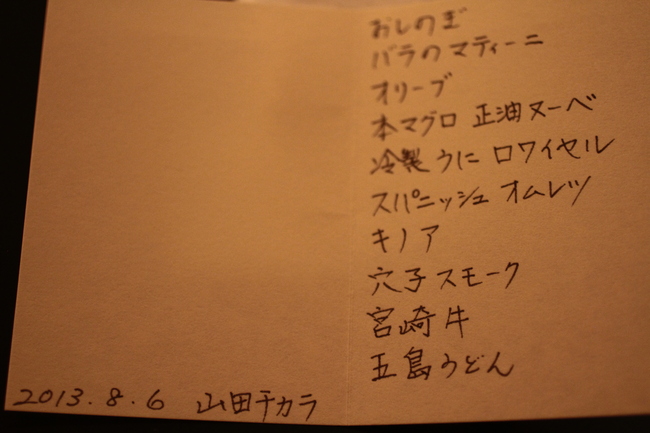 おしのぎ
バラのマティーニ
オリーブ
本マグロ 正油ヌーベ
冷製うに ロワイセル
スパニッシュ オムレツ
キノア
穴子スモーク
宮崎牛
五島うどん
2013.8.6 山田チカラ